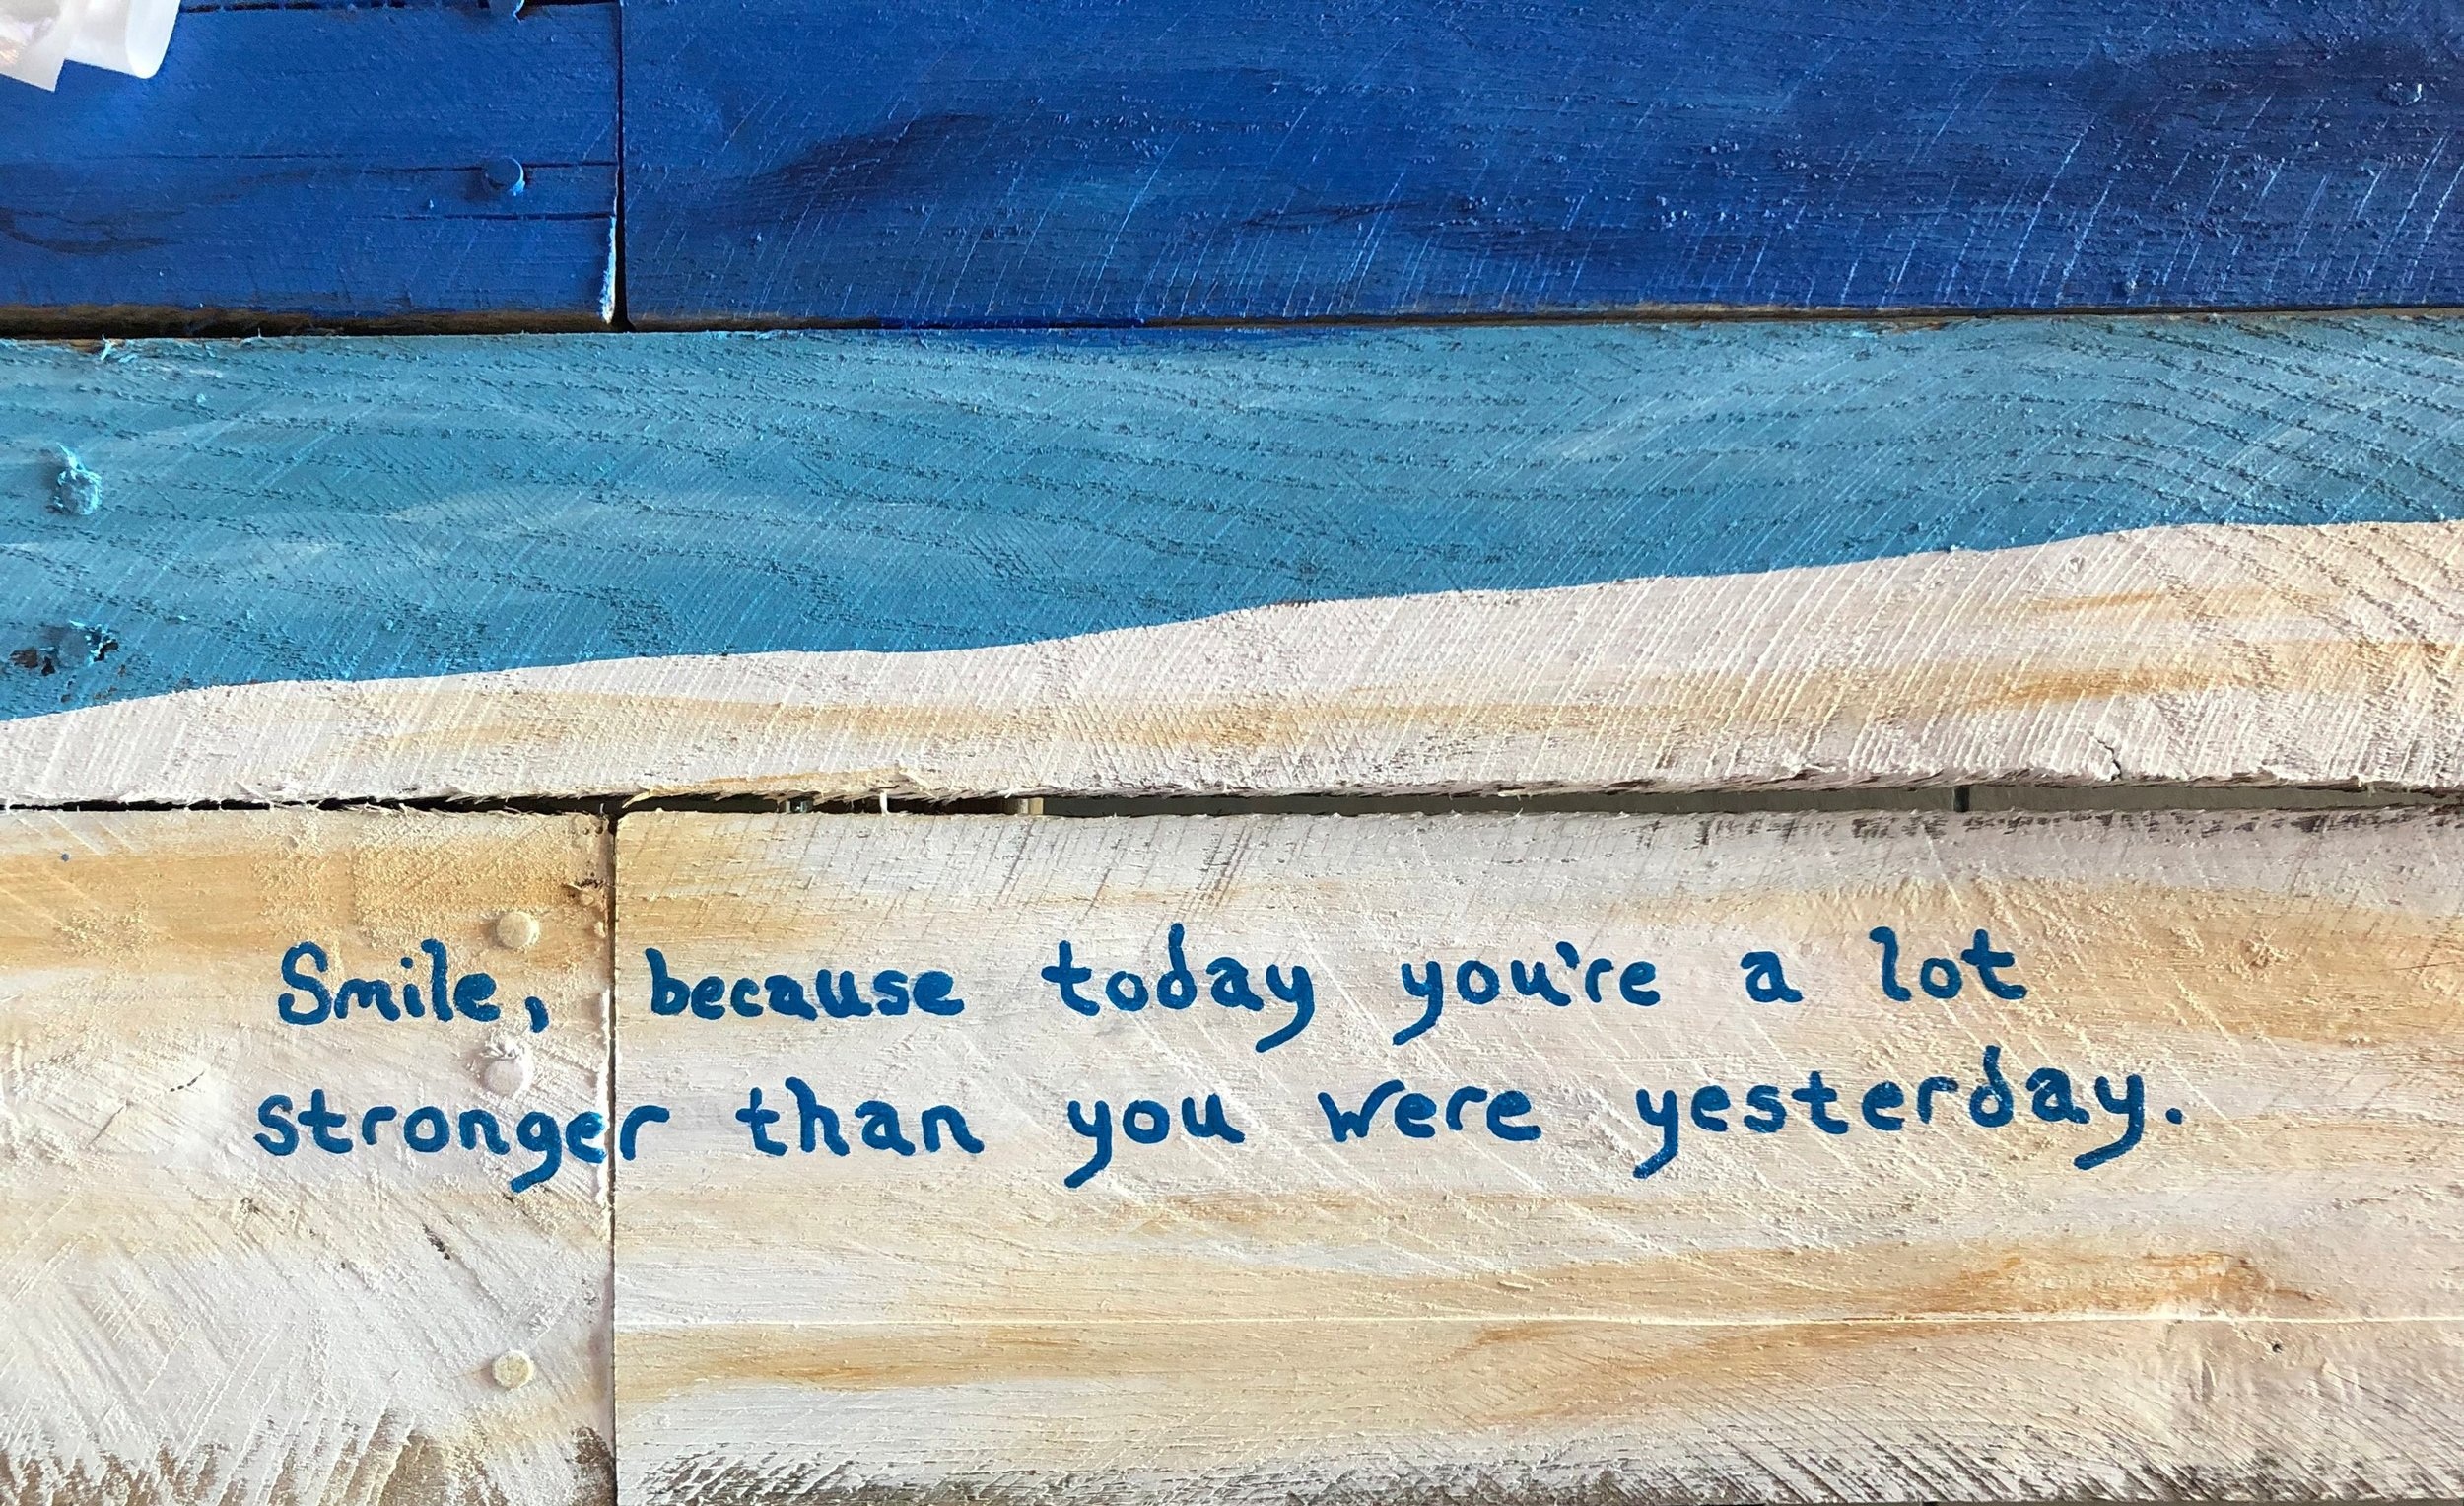 Smile, because today you're a lot
stronger than you were yesterday.